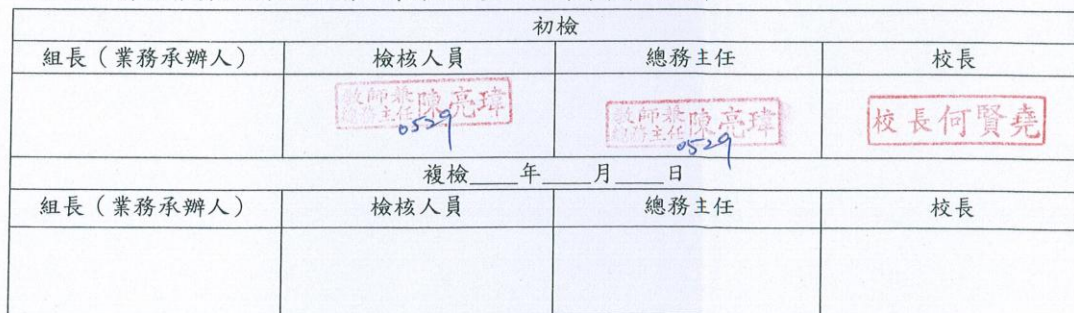 初檢
組長（業務承辦人） 檢核人員 總務主任 校長
教師兼總務主任 陳亮瑋 0529 教師兼總務主任 陳亮瑋 0529 校長何賢堯
複檢____年____月____日
組長（業務承辦人） 檢核人員 總務主任 校長